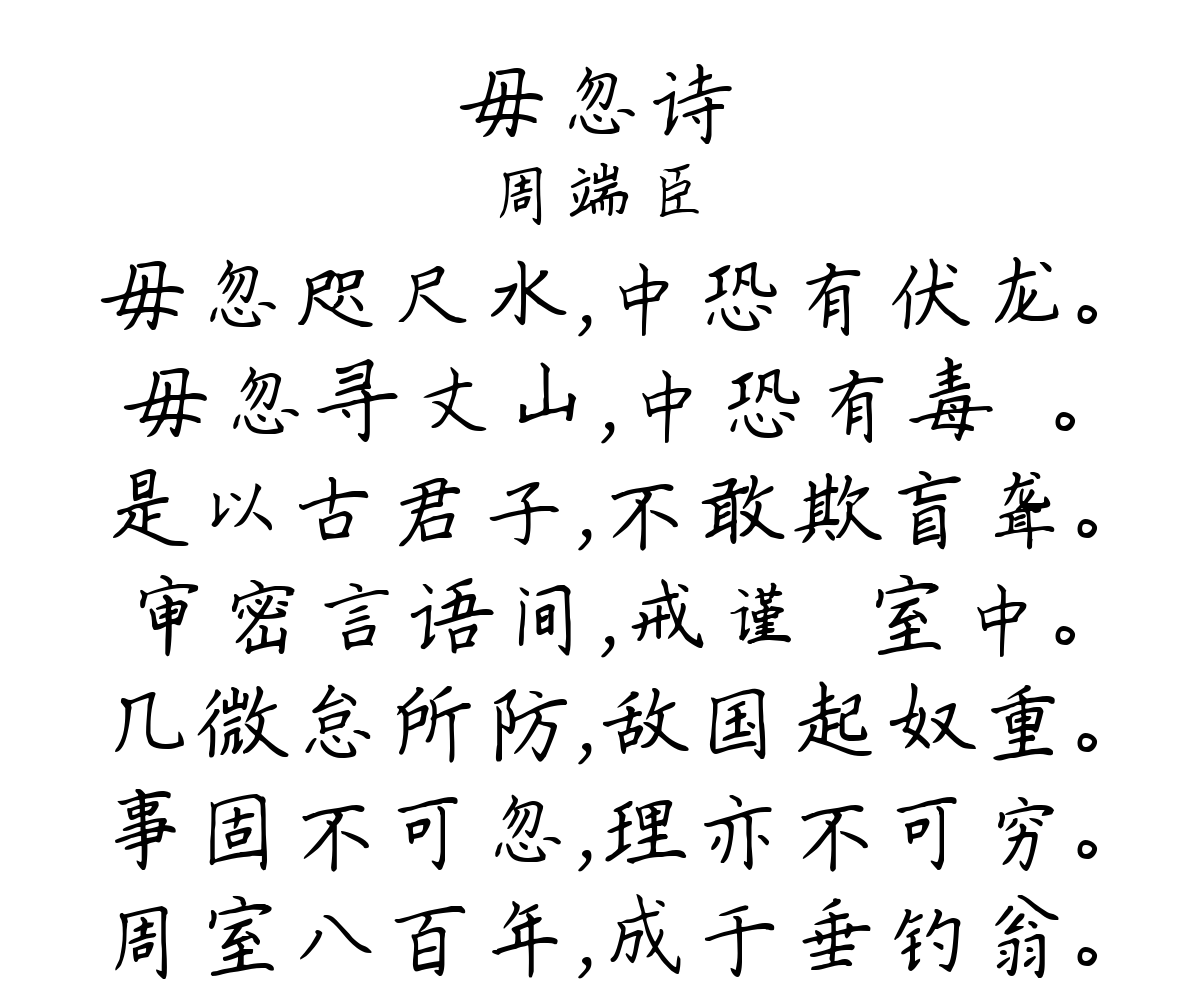 毋忽诗
周端臣
毋忽咫尺水,中恐有伏龙。
毋忽寻丈山,中恐有毒 。
是以古君子,不敢欺盲聋。
审密言语间,戒谨 室中。
几微怠所防,敌国起奴重。
事固不可忽,理亦不可穷。
周室八百年,成于垂钓翁。